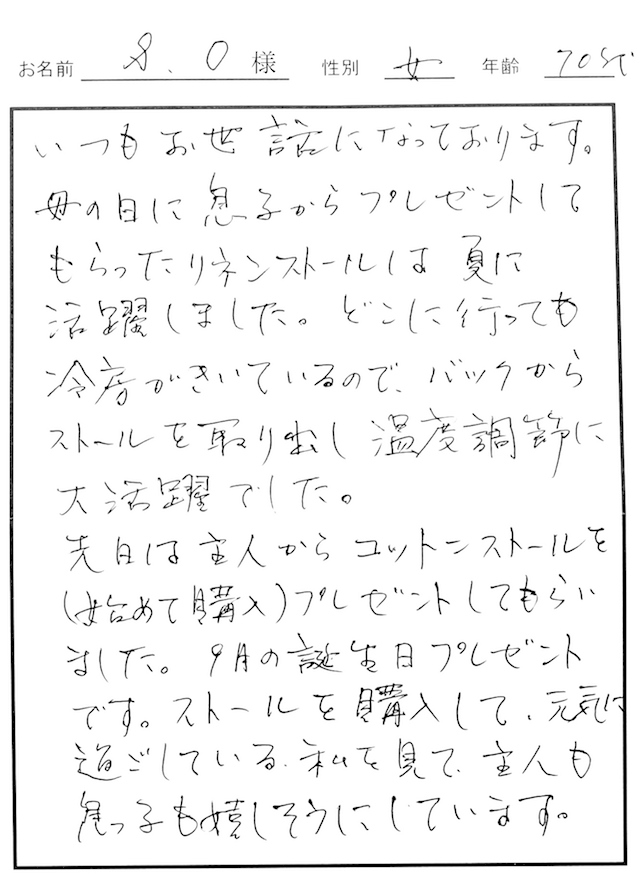 お名前 S.O 様 性別 女 年齢 70代
いつもお世話になっております。
母の日に息子からプレゼントして
もらったリネンストールは夏に
活躍しました。どこに行っても
冷房がきいているので、バックから
ストールを取り出し温度調節に
大活躍でした。
先日は主人からコットンストールを
(始めて購入)プレゼントしてもらい
ました。9月の誕生日プレゼント
です。ストールを購入して、元気に
過ごしている私を見て、主人も
息っ子も嬉しそうにしています。